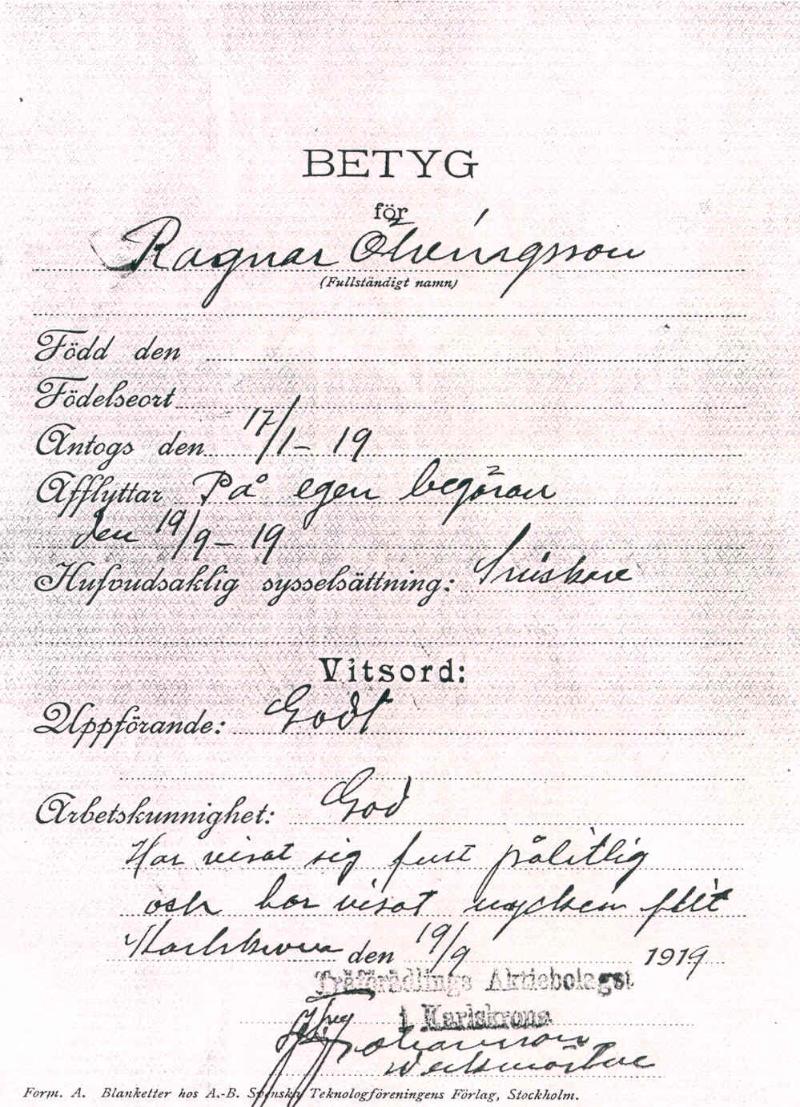 BETYG
för
Ragnar
(Fullständigt namn)
Född den
Födelseort
Antogs den 17/1 - 19
Afflyttar På egen begäran
den 19/9 - 19
Hufvudsaklig sysselsättning:
Vitsord:
Uppförande: Godt
Arbetskunnighet: God
Har visat sig fult pålitlig
och har visat mycken flit
Karlskrona den 19/9 1919
Träförädlings Aktiebolaget
i Karlskrona
Johansson
Form. A. Blanketter hos A.-B. Svenska Teknologföreningens Förlag, Stockholm.